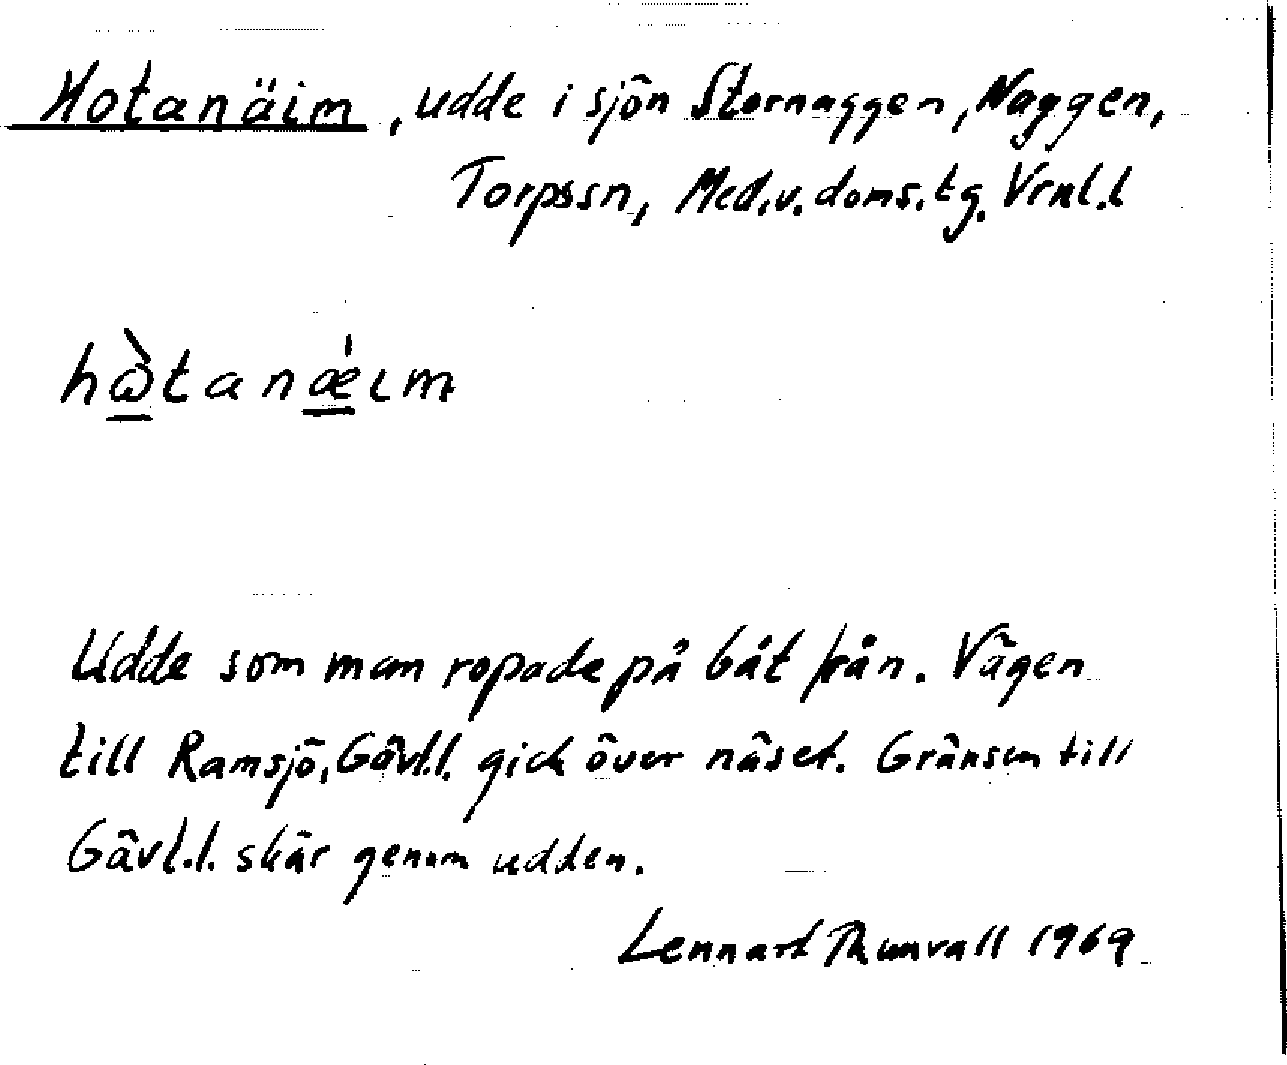 Hotanäim, udde i sjön Stornaggen, Naggen,
Torpssn, Med.v.doms.tg. Vrnl.l
hὼ̱tanǽ̱ιm
Udde som man ropade på båt från. Vägen
till Ramsjö, Gävl.l. gick över näset. Gränsen till
Gävl.l. skär genom udden.
Lennart Thunvall 1969